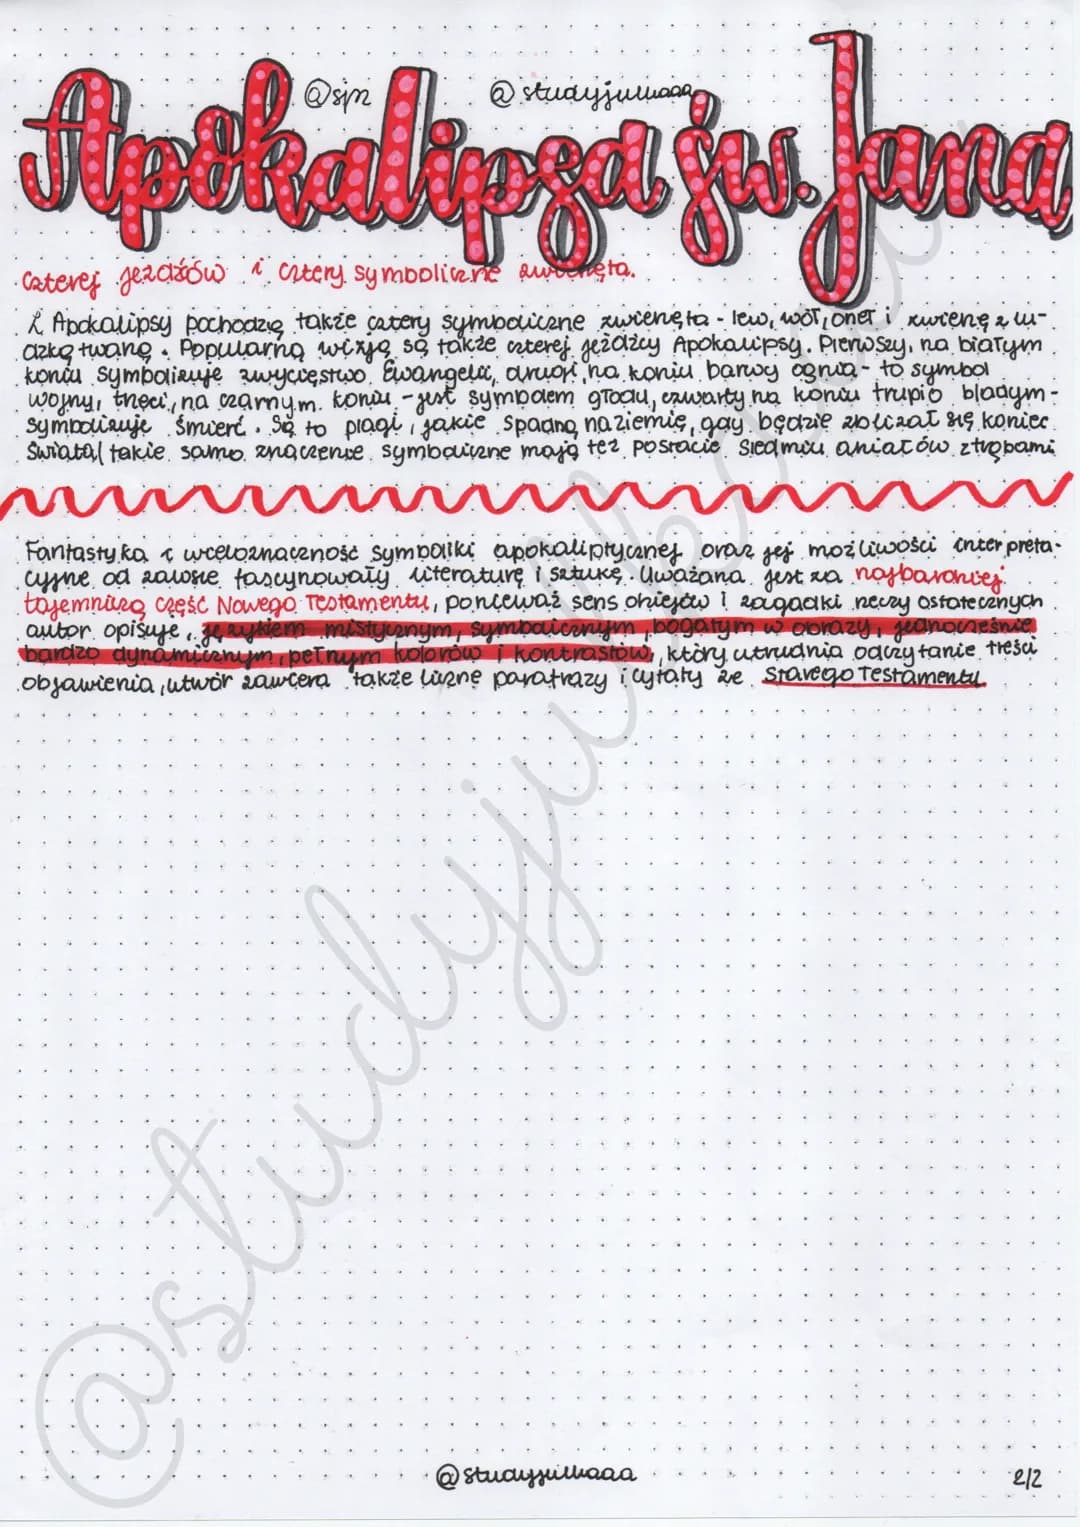 @sjn @studyjulkaaa
Apokalipsa św. Jana
Czterej jeźdźców i cztery symboliczne zwierzęta.
Z Apokalipsy pochodzą także cztery symboliczne zwierzęta - lew, wół, orzeł i zwierzę z lu-
dzką twarzą. Popularną wizją są także czterej jeźdźcy Apokalipsy. Pierwszy, na białym
koniu symbolizuje zwycięstwo Ewangelii, drugi, na koniu barwy ognia - to symbol
wojny, trzeci, na czarnym koniu - jest symbolem głodu, czwarty na koniu trupio bladym -
symbolizuje śmierć. Są to plagi, jakie spadną na ziemię, gdy będzie zbliżał się koniec
świata/ takie samo znaczenie symboliczne mają też postacie siedmiu aniałów z trąbami
Fantastyka i wieloznaczność symboliki apokaliptycznej oraz jej możliwości interpreta-
cyjne od zawsze fascynowały literaturę i sztukę. Uważana jest za najbardziej
tajemniczą część Nowego Testamentu, ponieważ sens dziejów i zagadki rzeczy ostatecznych
autor opisuje, językiem mistycznym, symbolicznym, bogatym w obrazy, jednocześnie
bardzo dynamicznym, pełnym kolorów i kontrastów, który utrudnia odczytanie treści
objawienia, utwór zawiera także liczne parafrazy i cytaty ze Starego Testamentu
@studyjulkaaa
@studyjulkaaa 2/2